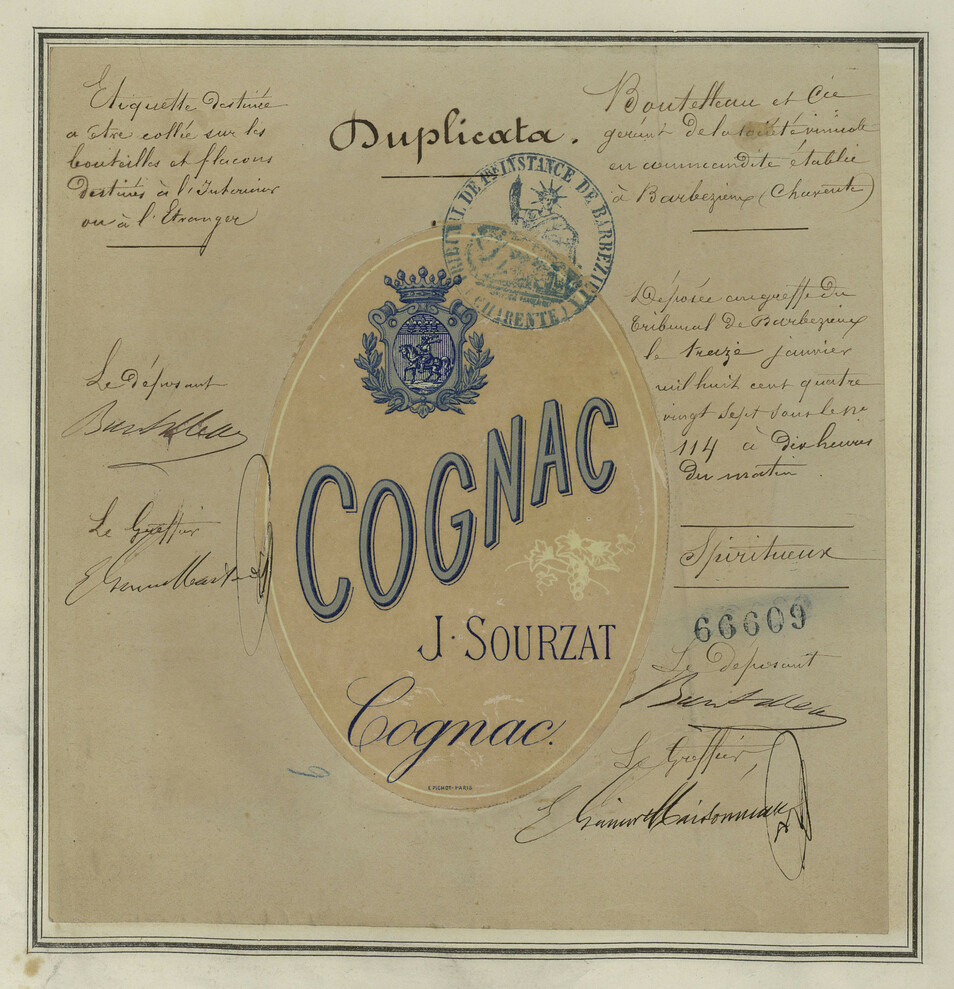 Etiquette destinée
a être collée sur les
bouteilles et flacons
destinés à l'Interieur
ou à l'Etranger
Duplicata.
Boutelleau et Cie
gerant de la société vinicole
en commandite établie
à Barbezieux (Charente)
TRIBUNAL DE 1RE INSTANCE DE BARBEZIEUX
(CHARENTE)
Déposée au greffe du
Tribunal de Barbezieux
le treize janvier
mil huit cent quatre
vingt sept sous le no
114 à dix heures
du matin.
Le déposant
Boutelleau
Le Greffier
COGNAC
J. SOURZAT
Cognac.
E. PICHOT - PARIS
Spiritueux
66609
Le deposant
Boutelleau
Le Greffier,